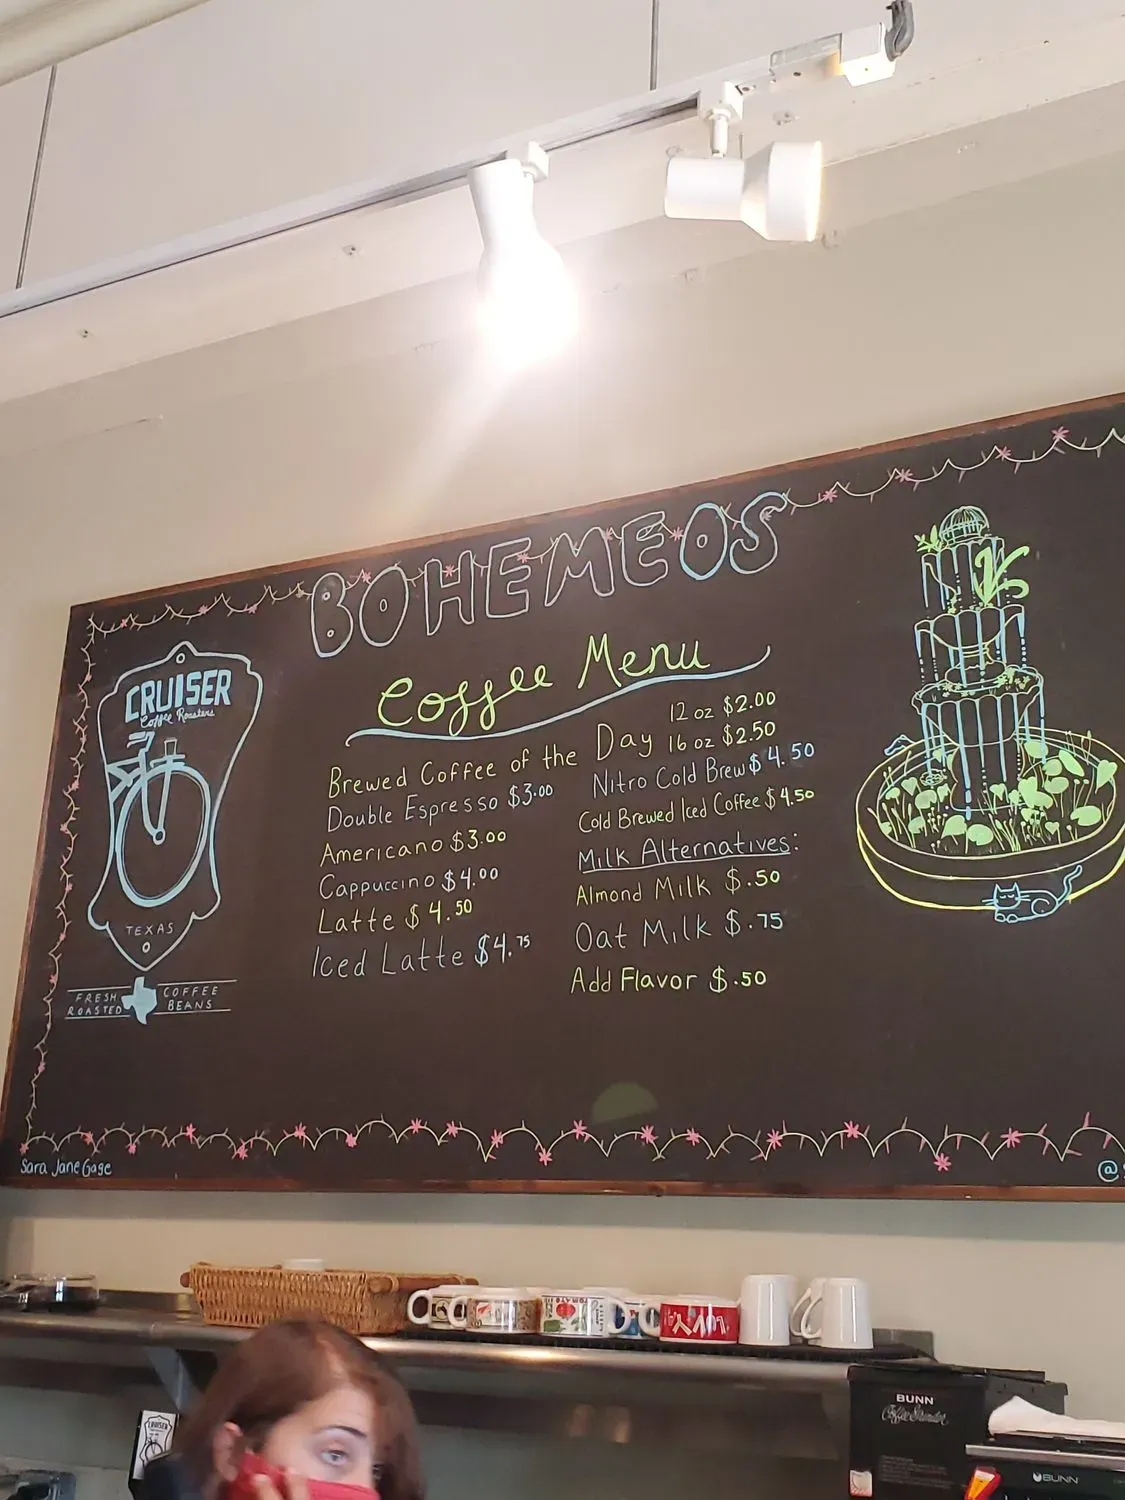 BOHEMEOS
Coffee Menu
CRUISER
Coffee Roasters
TEXAS
FRESH ROASTED COFFEE BEANS
12 oz $2.00
Brewed Coffee of the Day 16 oz $2.50
Double Espresso $3.00
Americano $3.00
Cappuccino $4.00
Latte $4.50
Iced Latte $4.75
Nitro Cold Brew $4.50
Cold Brewed Iced Coffee $4.50
Milk Alternatives:
Almond Milk $.50
Oat Milk $.75
Add Flavor $.50
Sara Jane Gage
@
TOMATO
CRUISER
BUNN
Coffee Grinder
BUNN